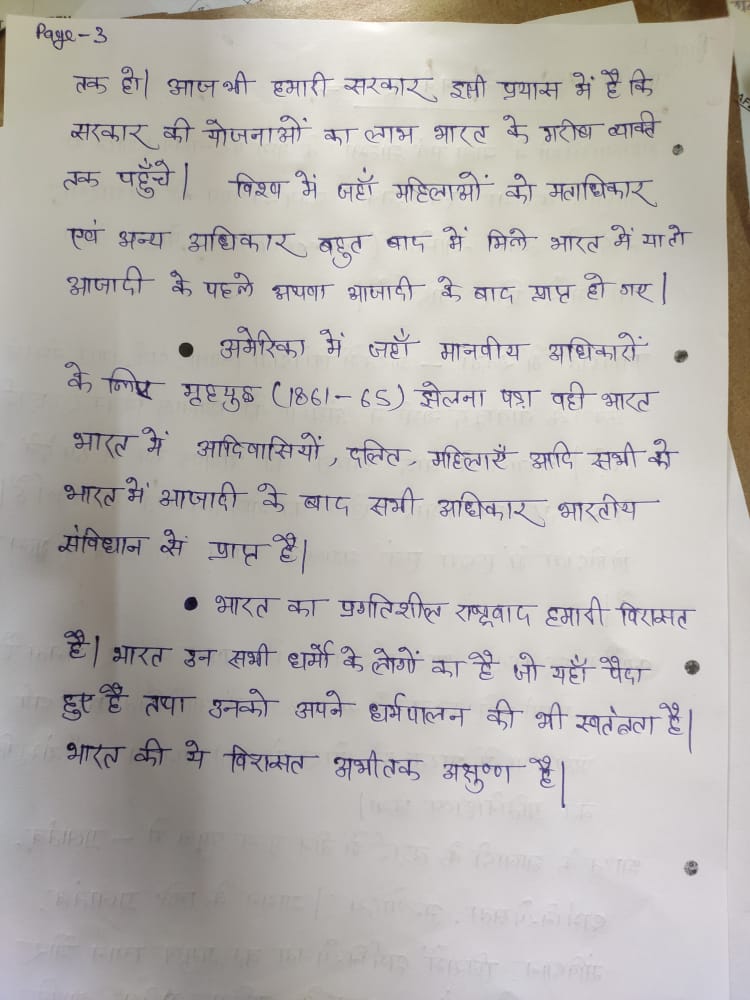 Page-3
तक हो। आज भी हमारी सरकार इसी प्रयास में है कि
सरकार की योजनाओं का लाभ भारत के गरीब व्यक्ति
तक पहुँचे। विश्व में जहाँ महिलाओं को मताधिकार
एवं अन्य अधिकार बहुत बाद में मिले भारत में या तो
आजादी के पहले अथवा आजादी के बाद प्राप्त हो गए।
● अमेरिका में जहाँ मानवीय अधिकारों
के लिए गृहयुद्ध (1861-65) झेलना पड़ा वही भारत
भारत में आदिवासियों, दलित, महिलाएँ आदि सभी को
भारत में आजादी के बाद सभी अधिकार भारतीय
संविधान से प्राप्त है।
● भारत का प्रगतिशील राष्ट्रवाद हमारी विरासत
है। भारत उन सभी धर्मो के लोगों का है जो यहाँ पैदा
हुए है तथा उनको अपने धर्मपालन की भी स्वतंत्रता है।
भारत की ये विरासत अभीतक अक्षुण्ण है।